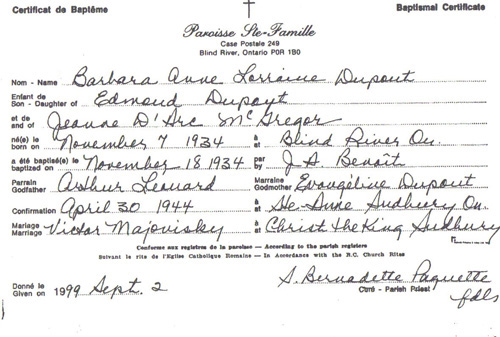 Certificat de Baptême
Baptismal Certificate
Paroisse Ste-Famille
Case Postale 249
Blind River, Ontario P0R 1B0
Nom - Name Barbara Anne Lorraine Dupont
Enfant de
Son - Daughter of Edmond Dupont
et de
and of Jeanne D'Arc McGregor
né(e) le
born on November 7 1934 à at Blind River On.
a été baptisé(e) le
baptized on November 18 1934 par by J.A. Benoît
Parrain
Godfather Arthur Leonard Marraine Godmother Evangéline Dupont
Confirmation April 30 1944 à at Ste-Anne Sudbury On.
Mariage
Marriage Victor Majovisky à at Christ the King Sudbury
Conforme aux registres de la paroisse — According to the parish registers
Suivant le rite de l'Eglise Catholique Romaine — In Accordance with the R.C. Church Rites
Donné le
Given on 1999 Sept. 2
S. Bernadette Paquette
Curé - Parish Priest
fdls